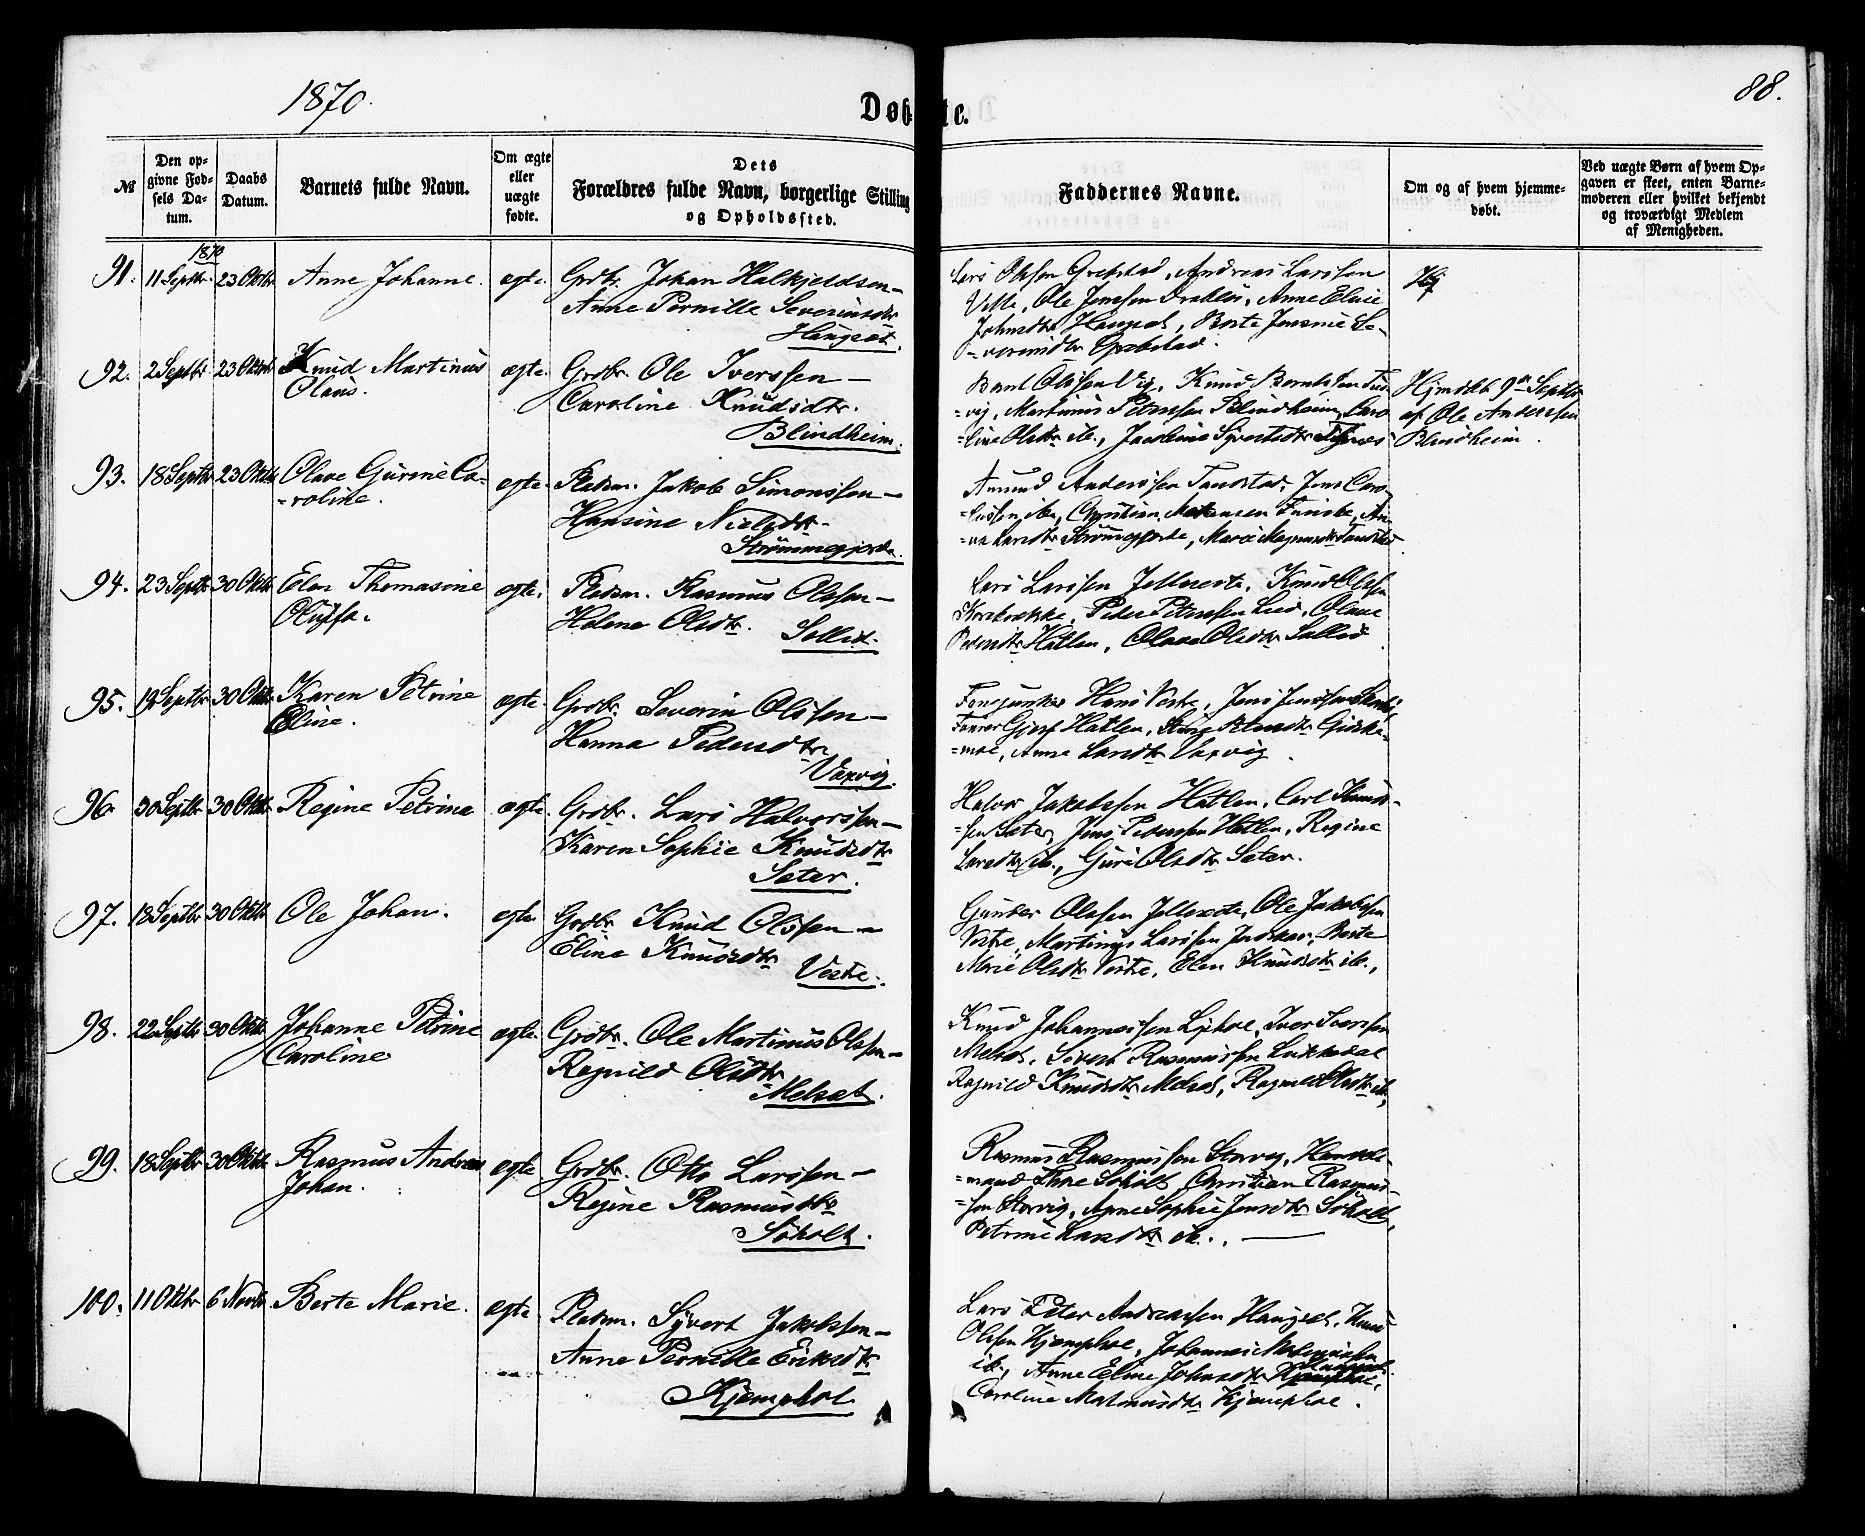 1870.
Døbte.
88.
№
Den opgivne Fødsels Datum.
Daabs Datum.
Barnets fulde Navn.
Om ægte eller uægte fødte.
Dets Forældres fulde Navn, borgerlige Stilling og Opholdssted.
Faddernes Navne.
Om og af hvem hjemmedøbt.
Ved uægte Børn af hvem Opgaven er skeet, enten Barnemoderen eller hvilket bekjendt og troværdigt Medlem af Menigheden.
1870
91. 11 Septbr 23 Oktbr Anne Johanne. ægte. Grdbr. Johan Halkjeldsen –
Anne Pernille Severinsdtr
Haugset.
Lars Olsen Grebstad, Andreas Larssen
Velle, Ole Jenssen Drabløs, Anne Eline
Johnsdtr Haugset, Berte Jensine Se-
=verinsdtr Grebstad.
92. 2 Septbr 23 Oktbr Knud Martinus
Olaus.
ægte. Grdbr. Ole Iverssen –
Caroline Knudsdtr.
Blindheim.
Bernt Olssen Vig, Knud Berntssen
=vig, Martinus Peterssen Blindheim, Caro
=line Olsdtr ib.,
Hjmdøbt 9de Septbr
af Ole Anderssen
Blindheim.
93. 18 Septbr 23 Oktbr Olave Gurine Ca-
=roline.
ægte. Pladsm. Jakob Simonssen –
Hansine Nielsdtr –
Strømmegjerde.
Amund Anderssen Tandstad, Jens Caro
=liussen ib., Christian
=ne Larsdtr Strømmegjerde, Marie Magnusdtr Tandstad.
94. 23 Septbr 30 Oktbr Elen Thomasine
Oluffa.
ægte. Pladsm. Rasmus Olssen –
Helene Olsdtr. Sollid.
Lars Larssen Jelleseth, Knud Olssen
Korsbrekke, Peder Peterssen Lied, Olave
Petersdtr Hatlen, Olave Olsdtr Sollid
95. 19 Septbr 30 Oktbr Karen Petrine
Eline.
ægte. Grdbr. Severin Olssen –
Hanna Pedersdtr
Vaxvig.
Hans Vestre, Jens Jenssen
Hatlen, Giske-
=moe, Anne Larsdtr Vaxvig.
96. 30 Septbr 30 Oktbr Regine Petrine ægte. Grdbr. Lars Halvorssen –
Karen Sophie Knudsdtr
Seter.
Halvor Jakobssen Hatlen, Carl Knud-
=sen Seter, Jens Pederssen Hatlen, Regine
Larsdtr ib., Guri Olsdtr Seter.
97. 18 Septbr 30 Oktbr Ole Johan. ægte Grdbr. Knud Olssen –
Eline Knudsdtr
Vestre.
Gunder Olssen Jelleseth, Ole Jakobssen
Vestre, Martinus Larssen Indskar, Berte
Marie Olsdtr Vestre, Elen Knudsdtr ib.,
98. 22 Septbr 30 Oktbr Johanne Petrine
Caroline
ægte. Grdbr. Ole Martinus Olssen –
Ragnild Olsdtr
Melset.
Knud Johannessen Ljshol, Iver Iverssen
Melset, Sivert Rasmussen Lukkedal
Ragnild Knudsdtr Melset, Ragnild Olsdtr ib.,
99. 18 Septbr 30 Oktbr Rasmus Andreas
Johan.
ægte Grdbr. Otto Larssen –
Regine Rasmusdtr
Søholt.
Rasmus Rasmussen Storvig, Handels-
=mand Thore Søholt, Christian Rasmus-
=sen Storvig, Anne Sophie Jensdtr Søholt,
Petrine Larsdtr ib..
100. 11 Oktbr 6 Novbr. Berte Marie. ægte. Pladsm. Syvert Jakobssen –
Anne Pernille Eriksdtr
Kjemphol
Lars Peter Andreassen Haugset, Knud
Olssen Kjemphol, Johannes
ib., Anne Eline Johnsdtr Haugset,
Caroline Kjemphol.